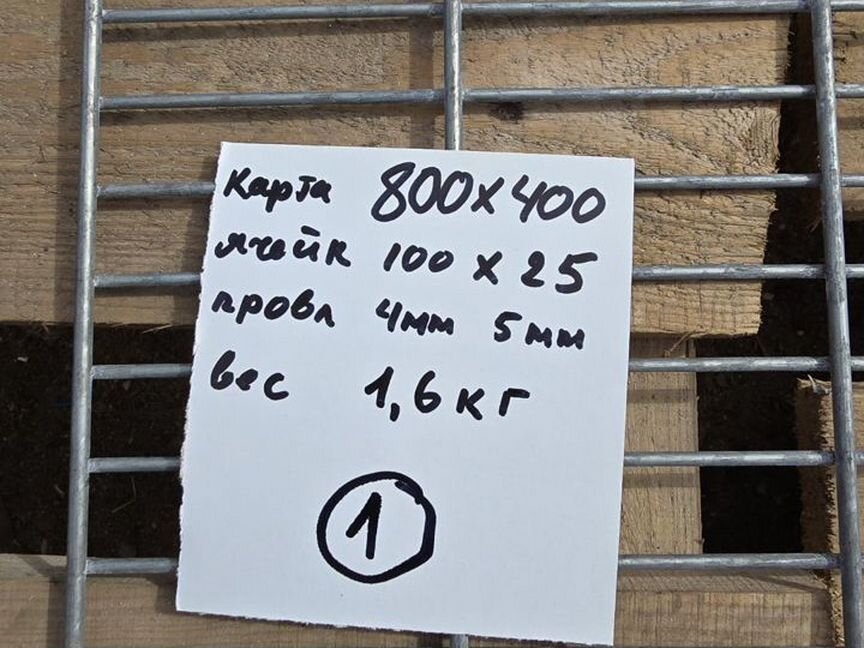 Карта 800х400
ячейк 100 х 25
провл 4мм 5мм
вес 1,6кг
1